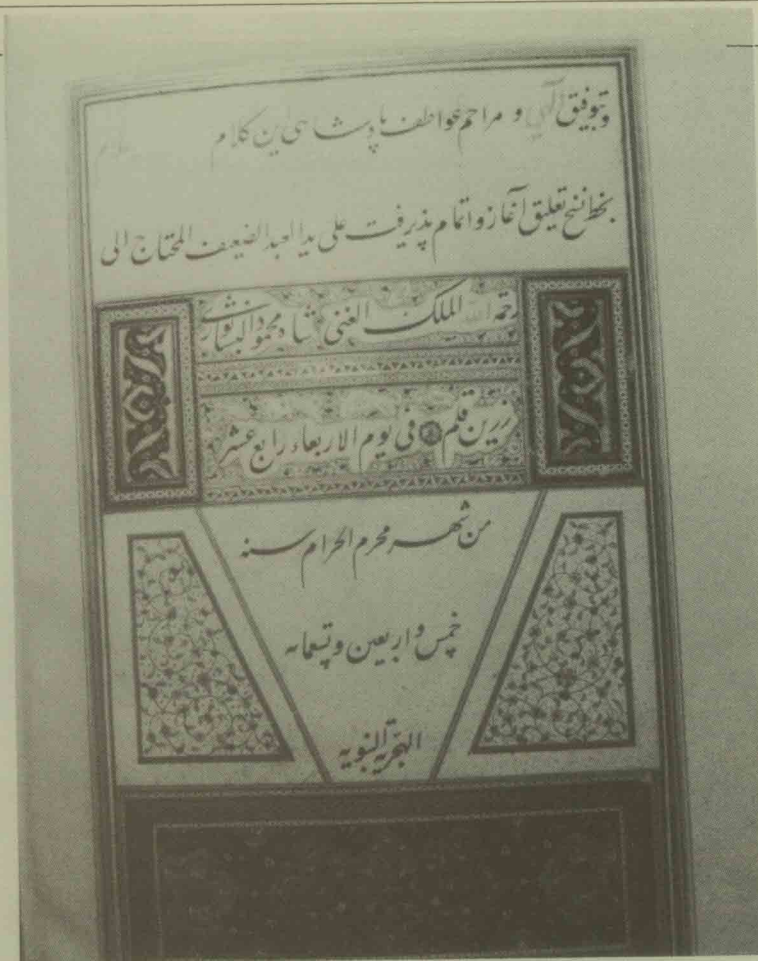 و بتوفیق الهی و مراحم عواطف پادشاهی این کلام
بخط نسخ تعلیق آغاز و اتمام پذیرفت علی ید العبد الضعیف المحتاج الی
رحمة الله الملک الغنی شاه محمود النیشابوری
زرین قلم فی یوم الاربعاء رابع عشر
من شهر محرم الحرام سنه
خمس و اربعین و تسعمائه
الهجریة النبویه